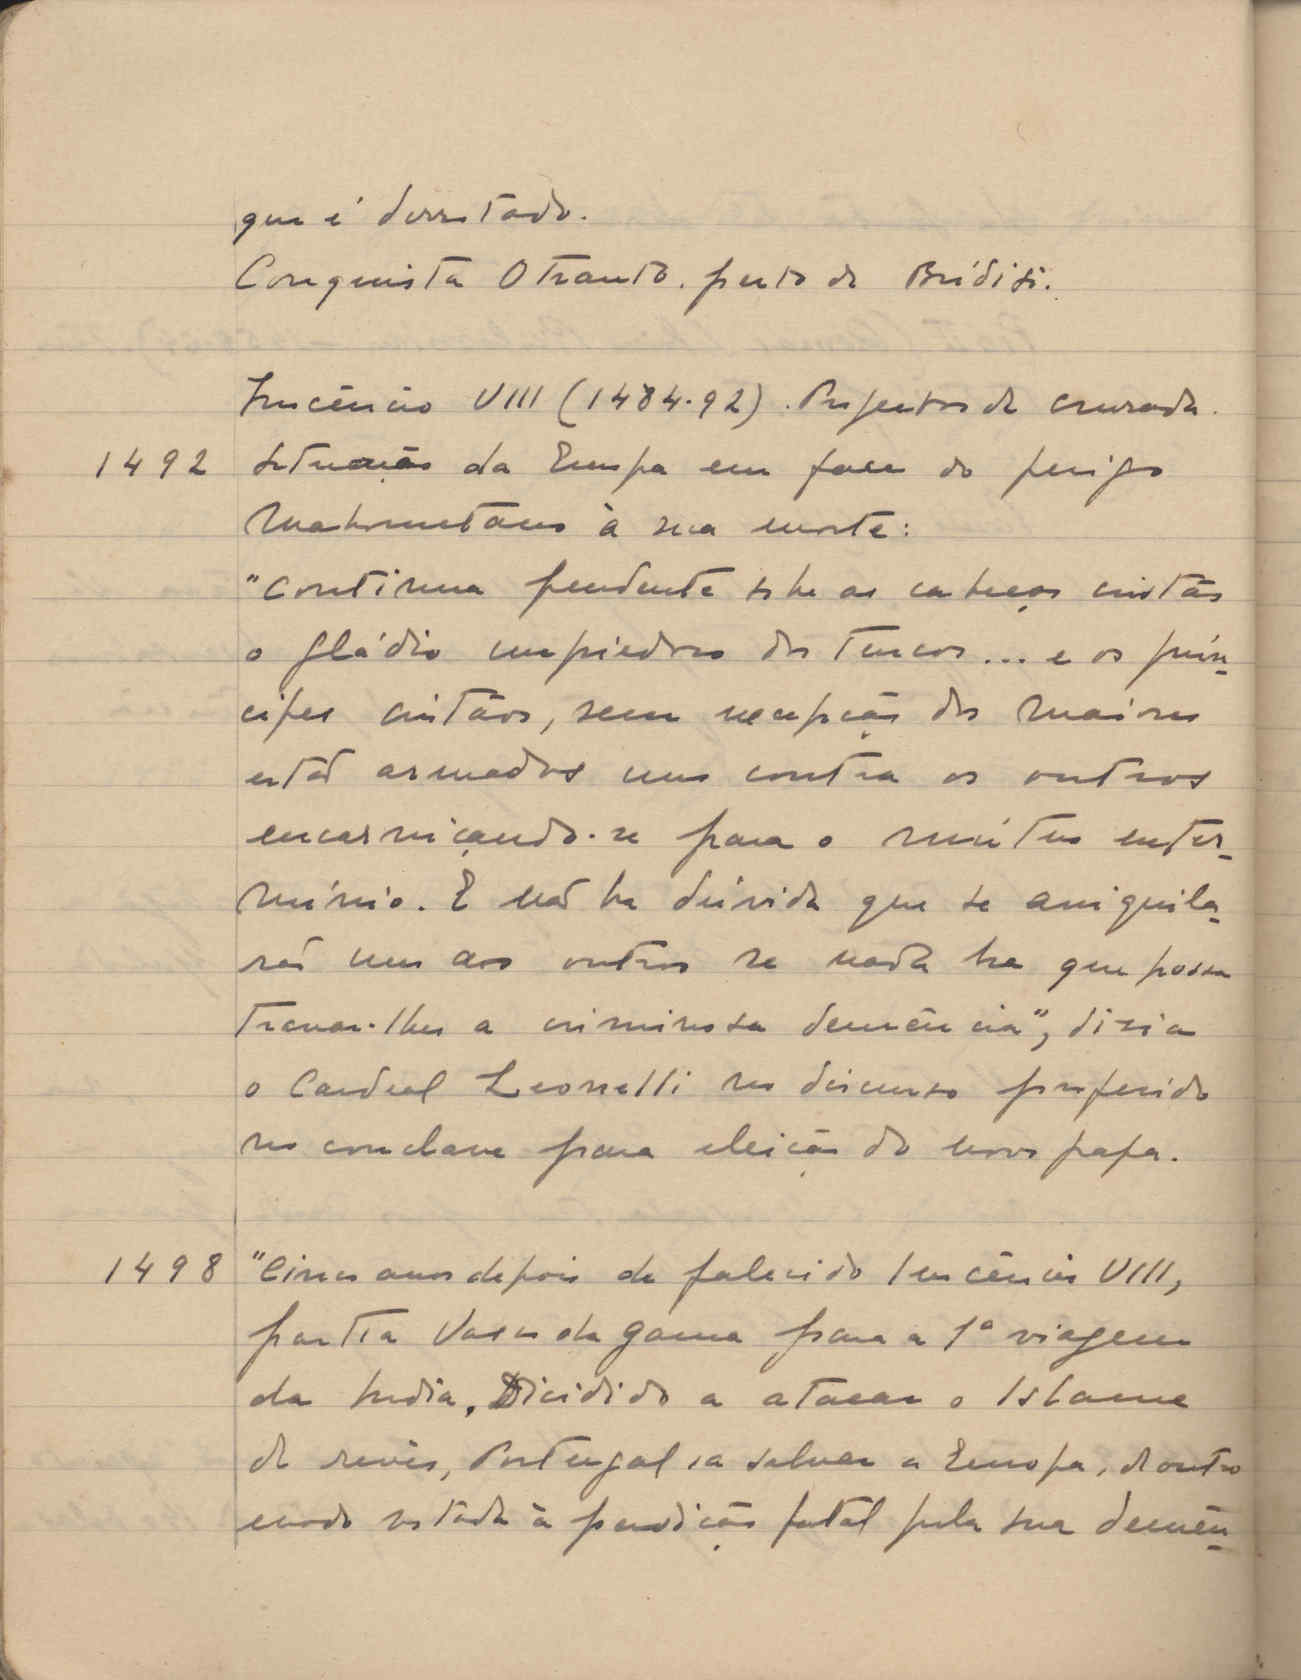 que é derrotado.
Conquista Otranto. perto de Brídisi.
Inocêncio VIII (1484-92). Projectos de cruzada.
1492 Situação da Europa em face do perigo
Mahometano à sua morte:
"Continua pendente sobre as cabeças cristãs
o gládio impiedoso dos Turcos... e os prín-
cipes cristãos, sem excepção dos maiores
estão armados uns contra os outros
encarniçando-se para o mútuo exter-
mínio. E não ha dúvida que se aniquila-
rão uns aos outros se nada ha que possa
travar-lhes a criminosa demência", dizia
o Cardeal Leonelli no discurso proferido
no conclave para eleição do novo papa.
1498 "Cinco anos depois de falecido Inocêncio VIII,
partia Vasco da Gama para a 1ª viagem
da India. Dicidido a atacar o Islame
de revés, Portugal ia salvar a Europa, de outro
modo votada à perdição fatal pela sua demên-